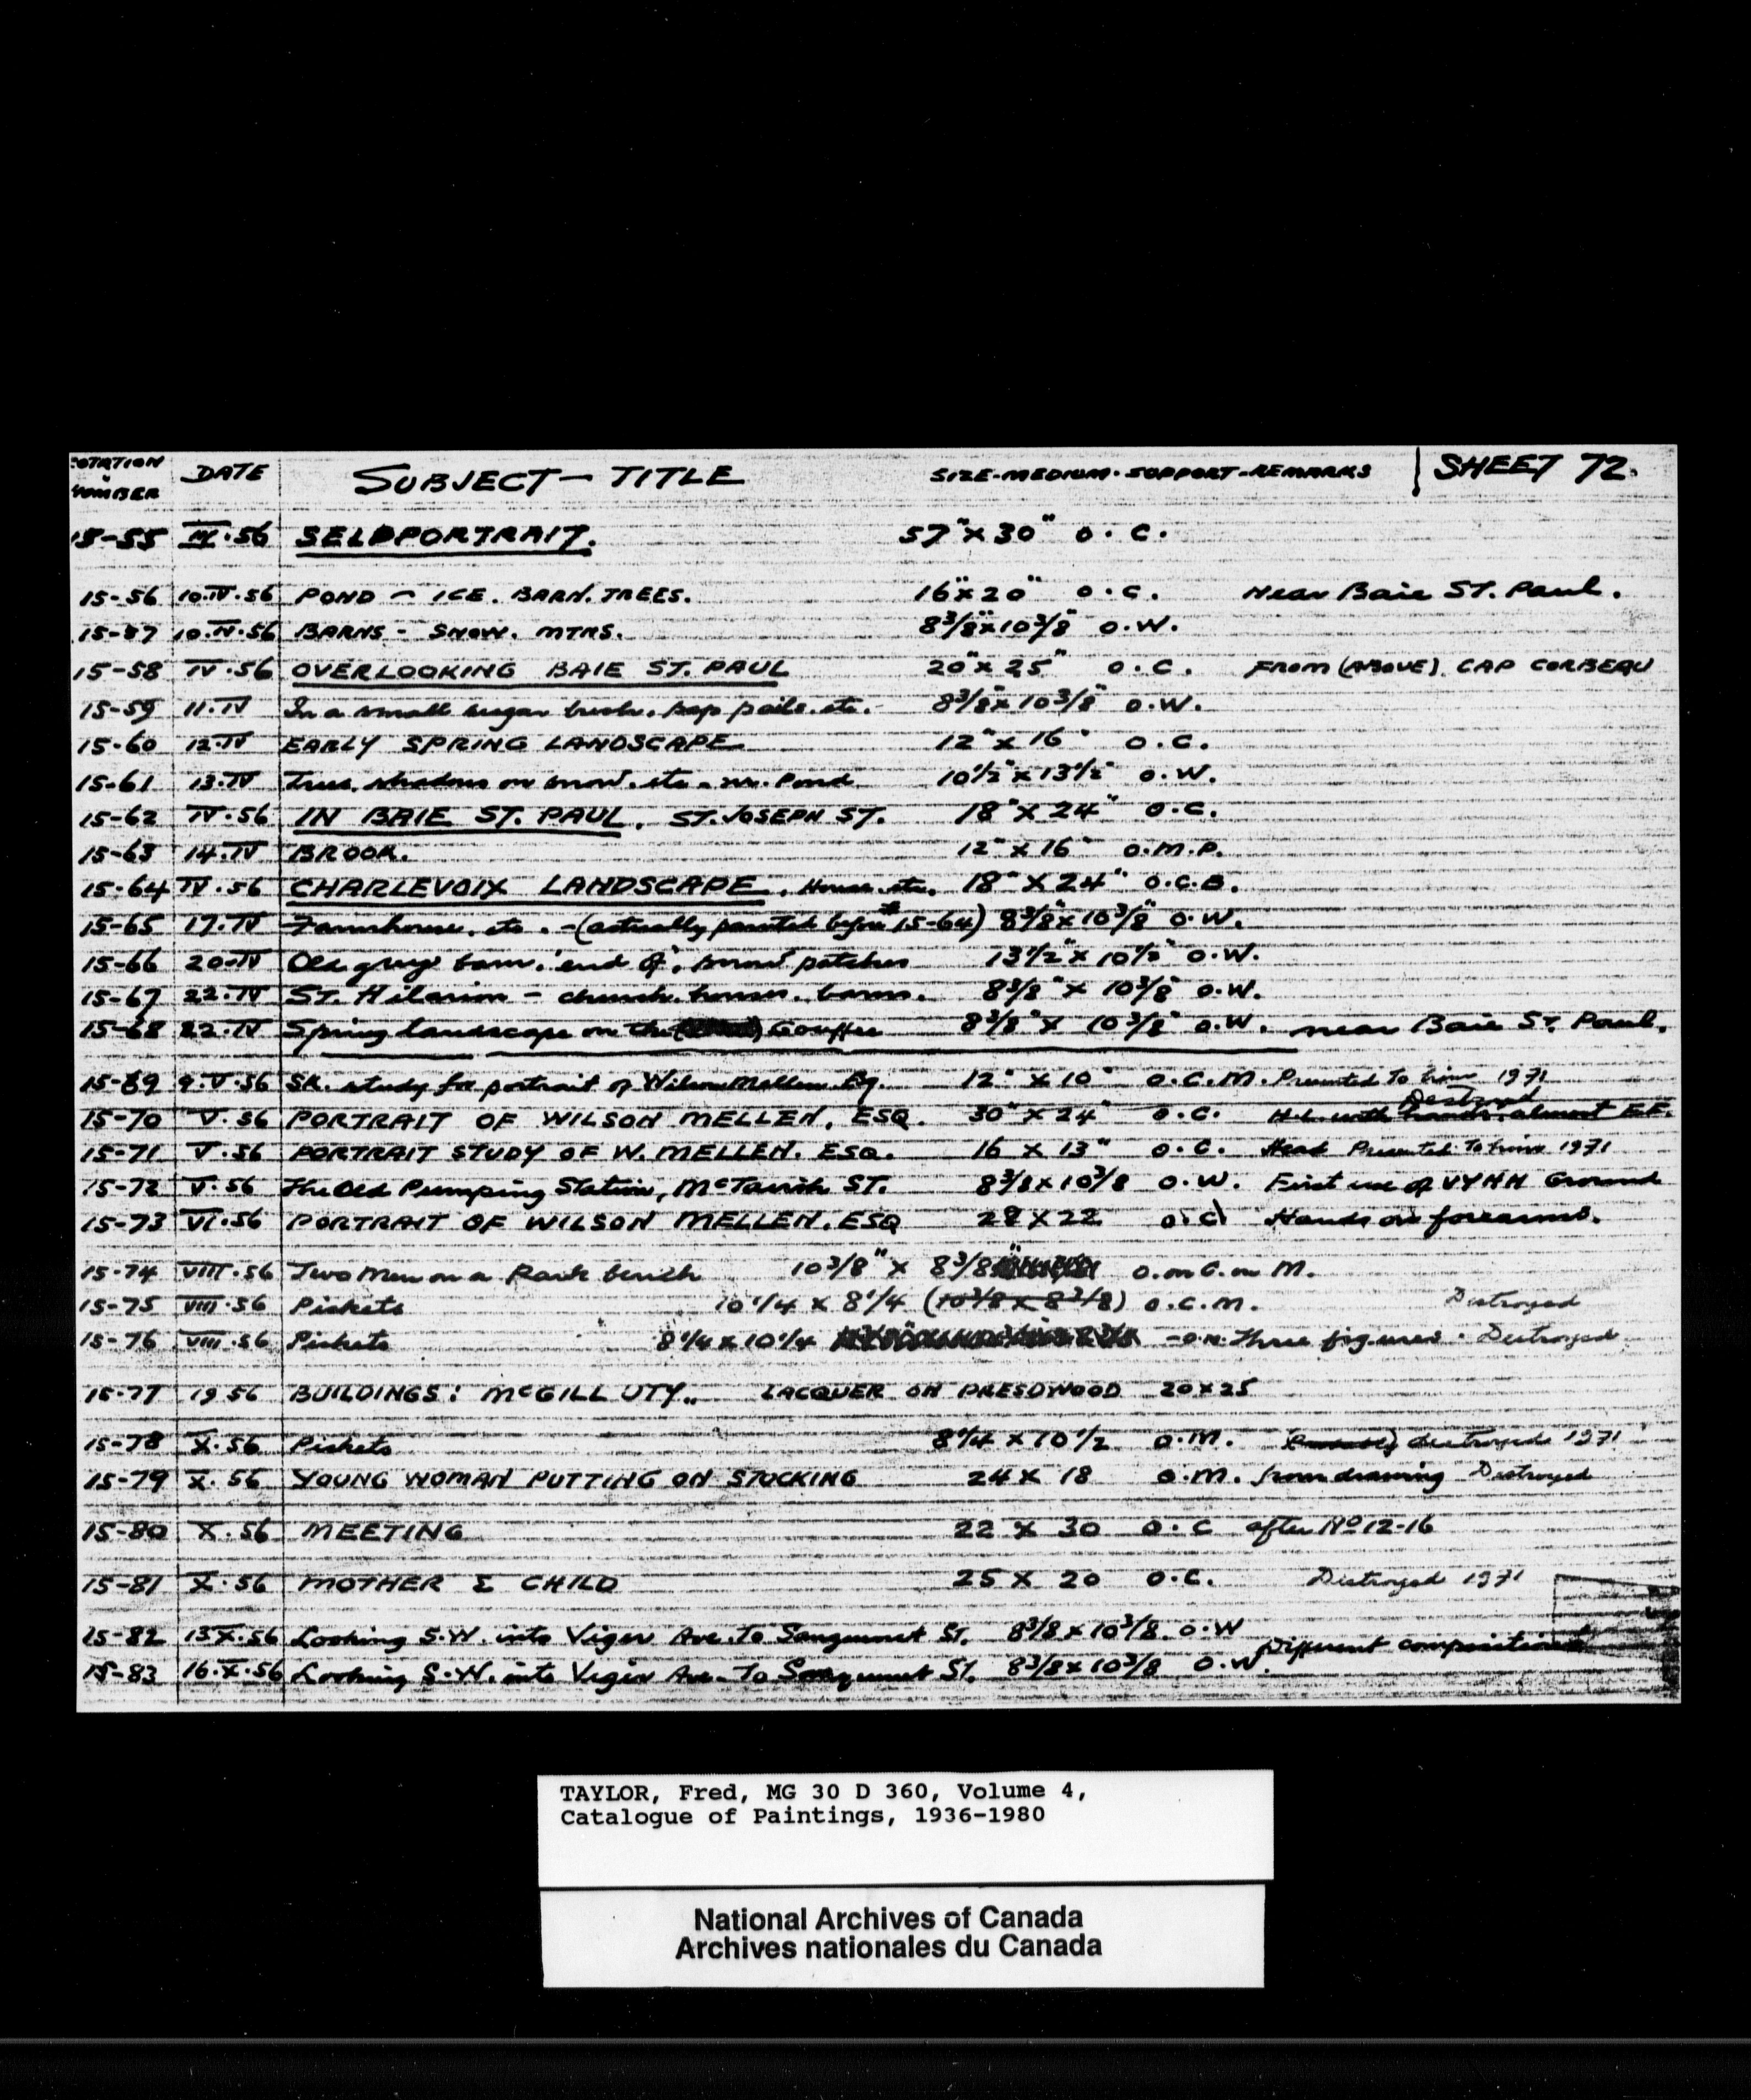 NOTATION NUMBER DATE SUBJECT — TITLE SIZE-MEDIUM-SUPPORT-REMARKS SHEET 72.
15-55 IV.56 SELFPORTRAIT. 57" x 30" O.C.
15-56 10.IV.56 POND — ICE. BARN. TREES. 16" x 20" O.C. Near Baie ST. Paul.
15-57 10.IV.56 BARNS - SNOW. MTNS. 8 3/8" x 10 3/8" O.W.
15-58 IV.56 OVERLOOKING BAIE ST. PAUL 20" x 25" O.C. FROM (ABOVE) CAP CORBEAU
15-59 11.IV In a small sugar bush. sap pails. etc. 8 3/8" x 10 3/8" O.W.
15-60 12.IV EARLY SPRING LANDSCAPE 12" x 16" O.C.
15-61 13.IV Trees, shadows on snow. etc. - nr. Pond 10 1/2" x 13 1/2" O.W.
15-62 IV.56 IN BAIE ST. PAUL. ST. JOSEPH ST. 18" x 24" O.C.
15-63 14.IV BROOK. 12" x 16" O.M.P.
15-64 IV.56 CHARLEVOIX LANDSCAPE. House etc. 18" x 24" O.C.B.
15-65 17.IV Farmhouse, etc. - (actually painted before 15-64) 8 3/8" x 10 3/8" O.W.
15-66 20-IV Old grey barn, 'end of', snow patches 13 1/2" x 10 1/2" O.W.
15-67 22.IV ST. Hilarion - church. houses. barns. 8 3/8" x 10 3/8" O.W.
15-68 22.IV Spring landscape on the Gouffre 8 3/8" x 10 3/8" O.W. near Baie ST. Paul.
15-69 9.V.56 SK. study for portrait of Wilson Mellen Esq. 12" x 10" O.C.M. Presented to him 1971
15-70 V.56 PORTRAIT OF WILSON MELLEN, ESQ. 30" x 24" O.C. H.L. with hands. almost F.F. Destroyed
15-71 V.56 PORTRAIT STUDY OF W. MELLEN. ESQ. 16 x 13" O.C. Head Presented to him 1971
15-72 V.56 The Old Pumping Station, McTavish ST. 8 3/8 x 10 3/8 O.W. First use of VYHH Ground
15-73 VI.56 PORTRAIT OF WILSON MELLEN. ESQ 28 x 22 O.C. Hands on forearms.
15-74 VIII.56 Two Men on a Park bench 10 3/8" x 8 3/8" O. on C. on M.
15-75 VIII.56 Pickets 10 1/4 x 8 1/4 (10 3/8 x 8 3/8) O.C.M. Destroyed
15-76 VIII.56 Pickets 8 1/4 x 10 1/4 - O.M. Three figures. Destroyed
15-77 1956 BUILDINGS: McGILL UTY.. LACQUER ON PRESDWOOD 20 x 25
15-78 X.56 Pickets 8 1/4 x 10 1/2 O.M. (Probably) destroyed 1971
15-79 X.56 YOUNG WOMAN PUTTING ON STOCKING 24 x 18 O.M. from drawing Destroyed
15-80 X.56 MEETING 22 x 30 O.C after No 12-16
15-81 X.56 MOTHER & CHILD 25 x 20 O.C. Destroyed 1971
15-82 13.X.56 Looking S.W. into Viger Ave. to Sanguinet St. 8 3/8 x 10 3/8. O.W
Different compositions
15-83 16.X.56 Looking S.W. into Viger Ave. to Sanguinet St. 8 3/8 x 10 3/8 O.W.
TAYLOR, Fred, MG 30 D 360, Volume 4,
Catalogue of Paintings, 1936-1980
National Archives of Canada
Archives nationales du Canada